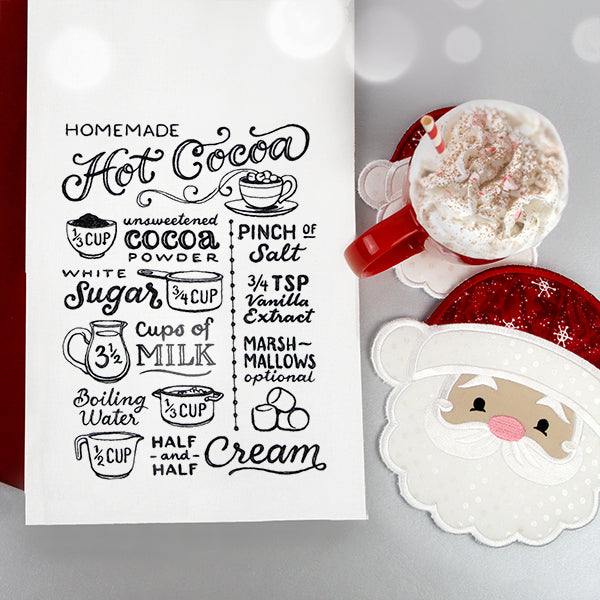 HOMEMADE
Hot Cocoa
1/3 CUP
unsweetened
COCOA
POWDER
WHITE
Sugar
3/4 CUP
3 1/2
Cups of
MILK
Boiling
Water
1/3 CUP
1/2 CUP
HALF
-and-
HALF
Cream
PINCH OF
Salt
3/4 TSP
Vanilla
Extract
MARSH~
MALLOWS
optional